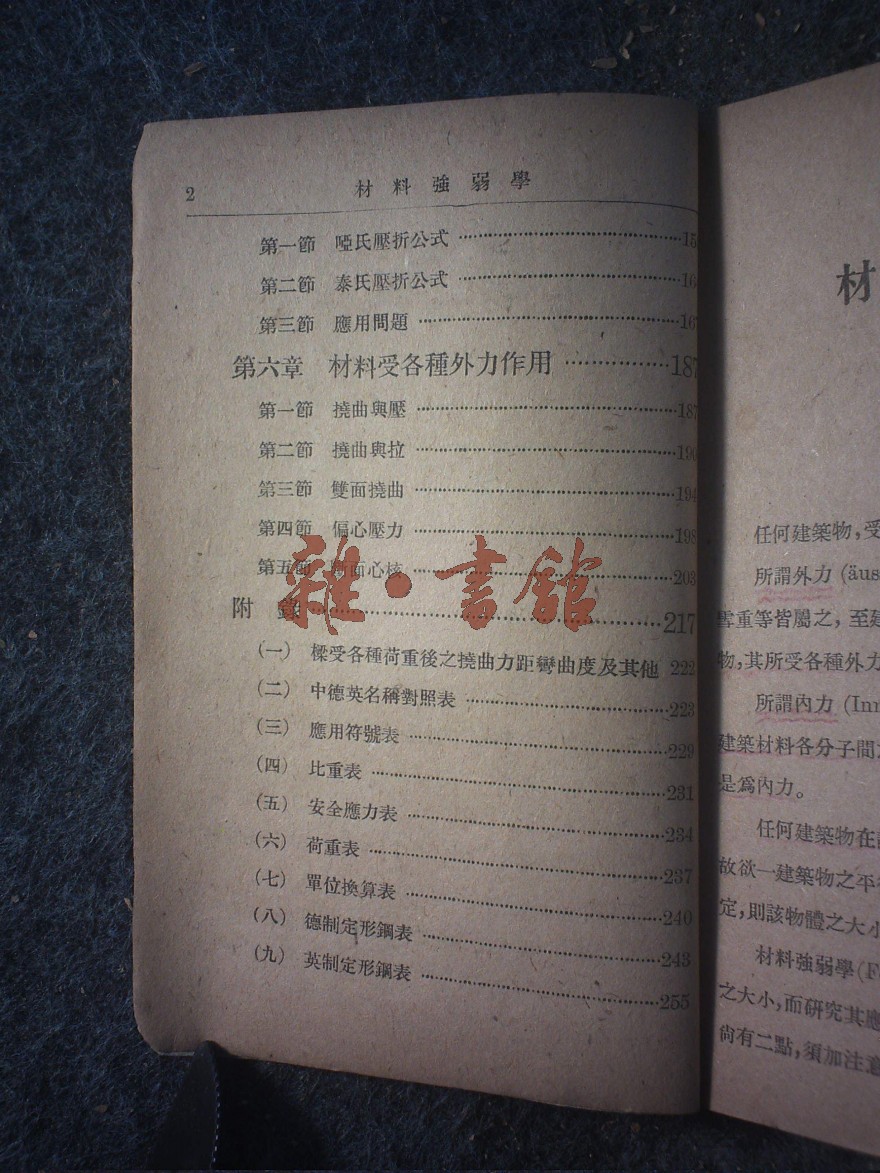 2 材料強弱學
第一節 啞氏壓折公式 ……15
第二節 泰氏壓折公式 ……16
第三節 應用問題 ……167
第六章 材料受各種外力作用 ……187
第一節 撓曲與壓 ……187
第二節 撓曲與拉 ……190
第三節 雙面撓曲 ……194
第四節 偏心壓力 ……198
第五節 斷面心核 ……203
附錄 ……217
(一) 樑受各種荷重後之撓曲力距彎曲度及其他 222
(二) 中德英名稱對照表 ……223
(三) 應用符號表 ……229
(四) 比重表 ……231
(五) 安全應力表 ……234
(六) 荷重表 ……237
(七) 單位換算表 ……240
(八) 德制定形鋼表 ……243
(九) 英制定形鋼表 ……255
雜·書館
材
任何建築物,受
所謂外力 (äus
雪重等皆屬之,至建
物,其所受各種外力
所謂內力 (Inn
建築材料各分子間
是爲內力。
任何建築物在
故欲一建築物之平
定,則該物體之大小
材料強弱學 (F
之大小,而研究其應
尚有二點,須加注意